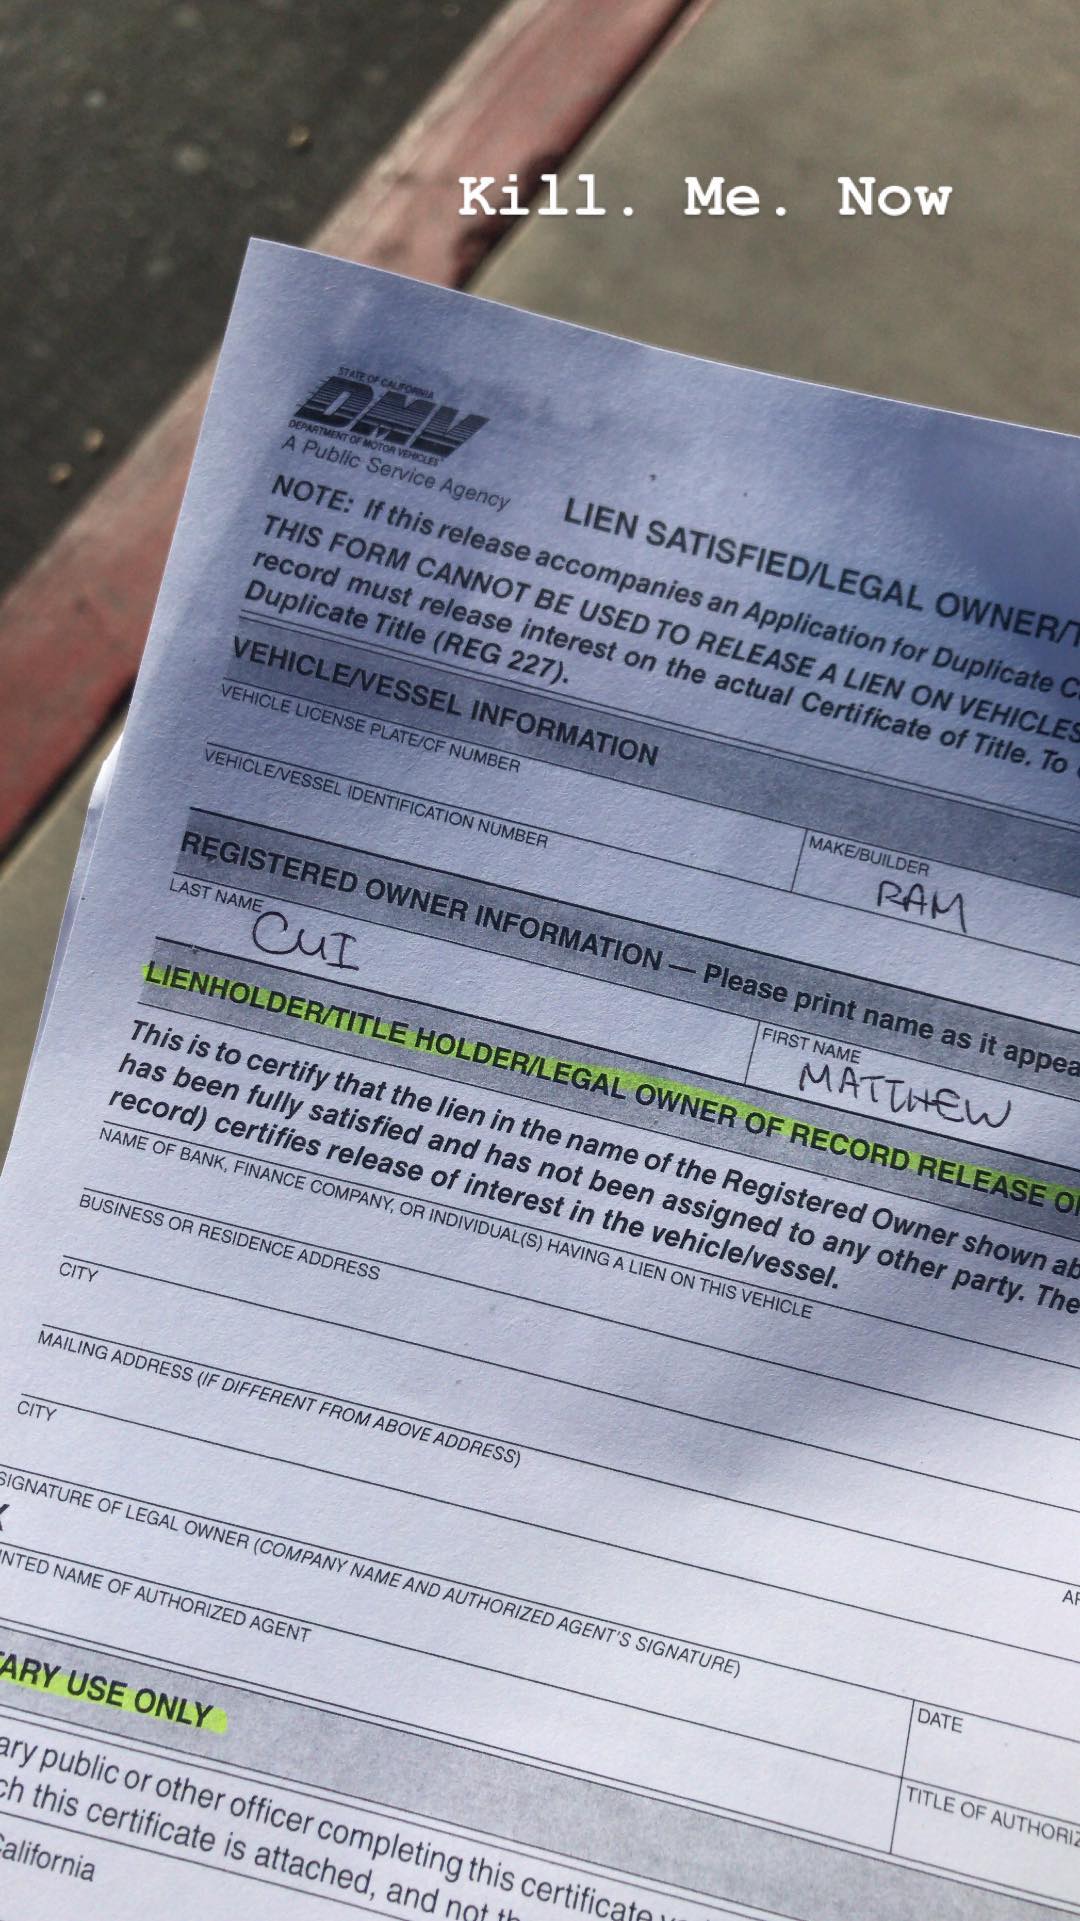 Kill. Me. Now
STATE OF CALIFORNIA
DMV
DEPARTMENT OF MOTOR VEHICLES
A Public Service Agency
LIEN SATISFIED/LEGAL OWNER/
NOTE: If this release accompanies an Application for Duplicate
THIS FORM CANNOT BE USED TO RELEASE A LIEN ON VEHICLES
record must release interest on the actual Certificate of Title. To
Duplicate Title (REG 227).
VEHICLE/VESSEL INFORMATION
VEHICLE LICENSE PLATE/CF NUMBER
MAKE/BUILDER
RAM
VEHICLE/VESSEL IDENTIFICATION NUMBER
REGISTERED OWNER INFORMATION — Please print name as it appea
LAST NAME
CUI
FIRST NAME
MATTHEW
LIENHOLDER/TITLE HOLDER/LEGAL OWNER OF RECORD RELEASE
This is to certify that the lien in the name of the Registered Owner shown ab
has been fully satisfied and has not been assigned to any other party. The
record) certifies release of interest in the vehicle/vessel.
NAME OF BANK, FINANCE COMPANY, OR INDIVIDUAL(S) HAVING A LIEN ON THIS VEHICLE
BUSINESS OR RESIDENCE ADDRESS
CITY
MAILING ADDRESS (IF DIFFERENT FROM ABOVE ADDRESS)
CITY
SIGNATURE OF LEGAL OWNER (COMPANY NAME AND AUTHORIZED AGENT'S SIGNATURE)
DATE
INTED NAME OF AUTHORIZED AGENT
TITLE OF AUTHORIZ
TARY USE ONLY
ary public or other officer completing this certificate
ch this certificate is attached, and not
California